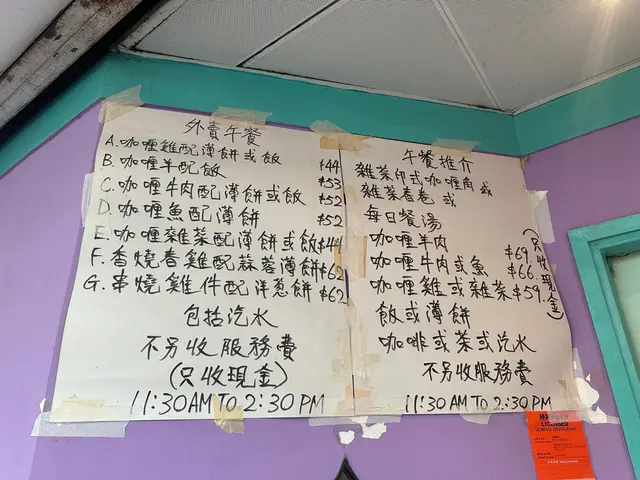 外賣午餐
A.咖喱雞配薄餅或飯 $44
B.咖喱羊配飯 $53
C.咖喱牛肉配薄餅或飯 $52
D.咖喱魚配薄餅 $52
E.咖喱雜菜配薄餅或飯 $44
F.香燒春雞配蒜蓉薄餅 $62
G.串燒雞件配洋蔥餅 $62
包括汽水
不另收服務費
(只收現金)
11:30AM TO 2:30PM
午餐推介
雜菜印式咖喱角 或
雜菜春卷 或
每日餐湯
咖喱羊肉 $69.
咖喱牛肉或魚 $66.
咖喱雞或雜菜 $59.
(只收現金)
飯或薄餅
咖啡或茶或汽水
不另收服務費
11:30AM TO 2:30PM
LICENSED